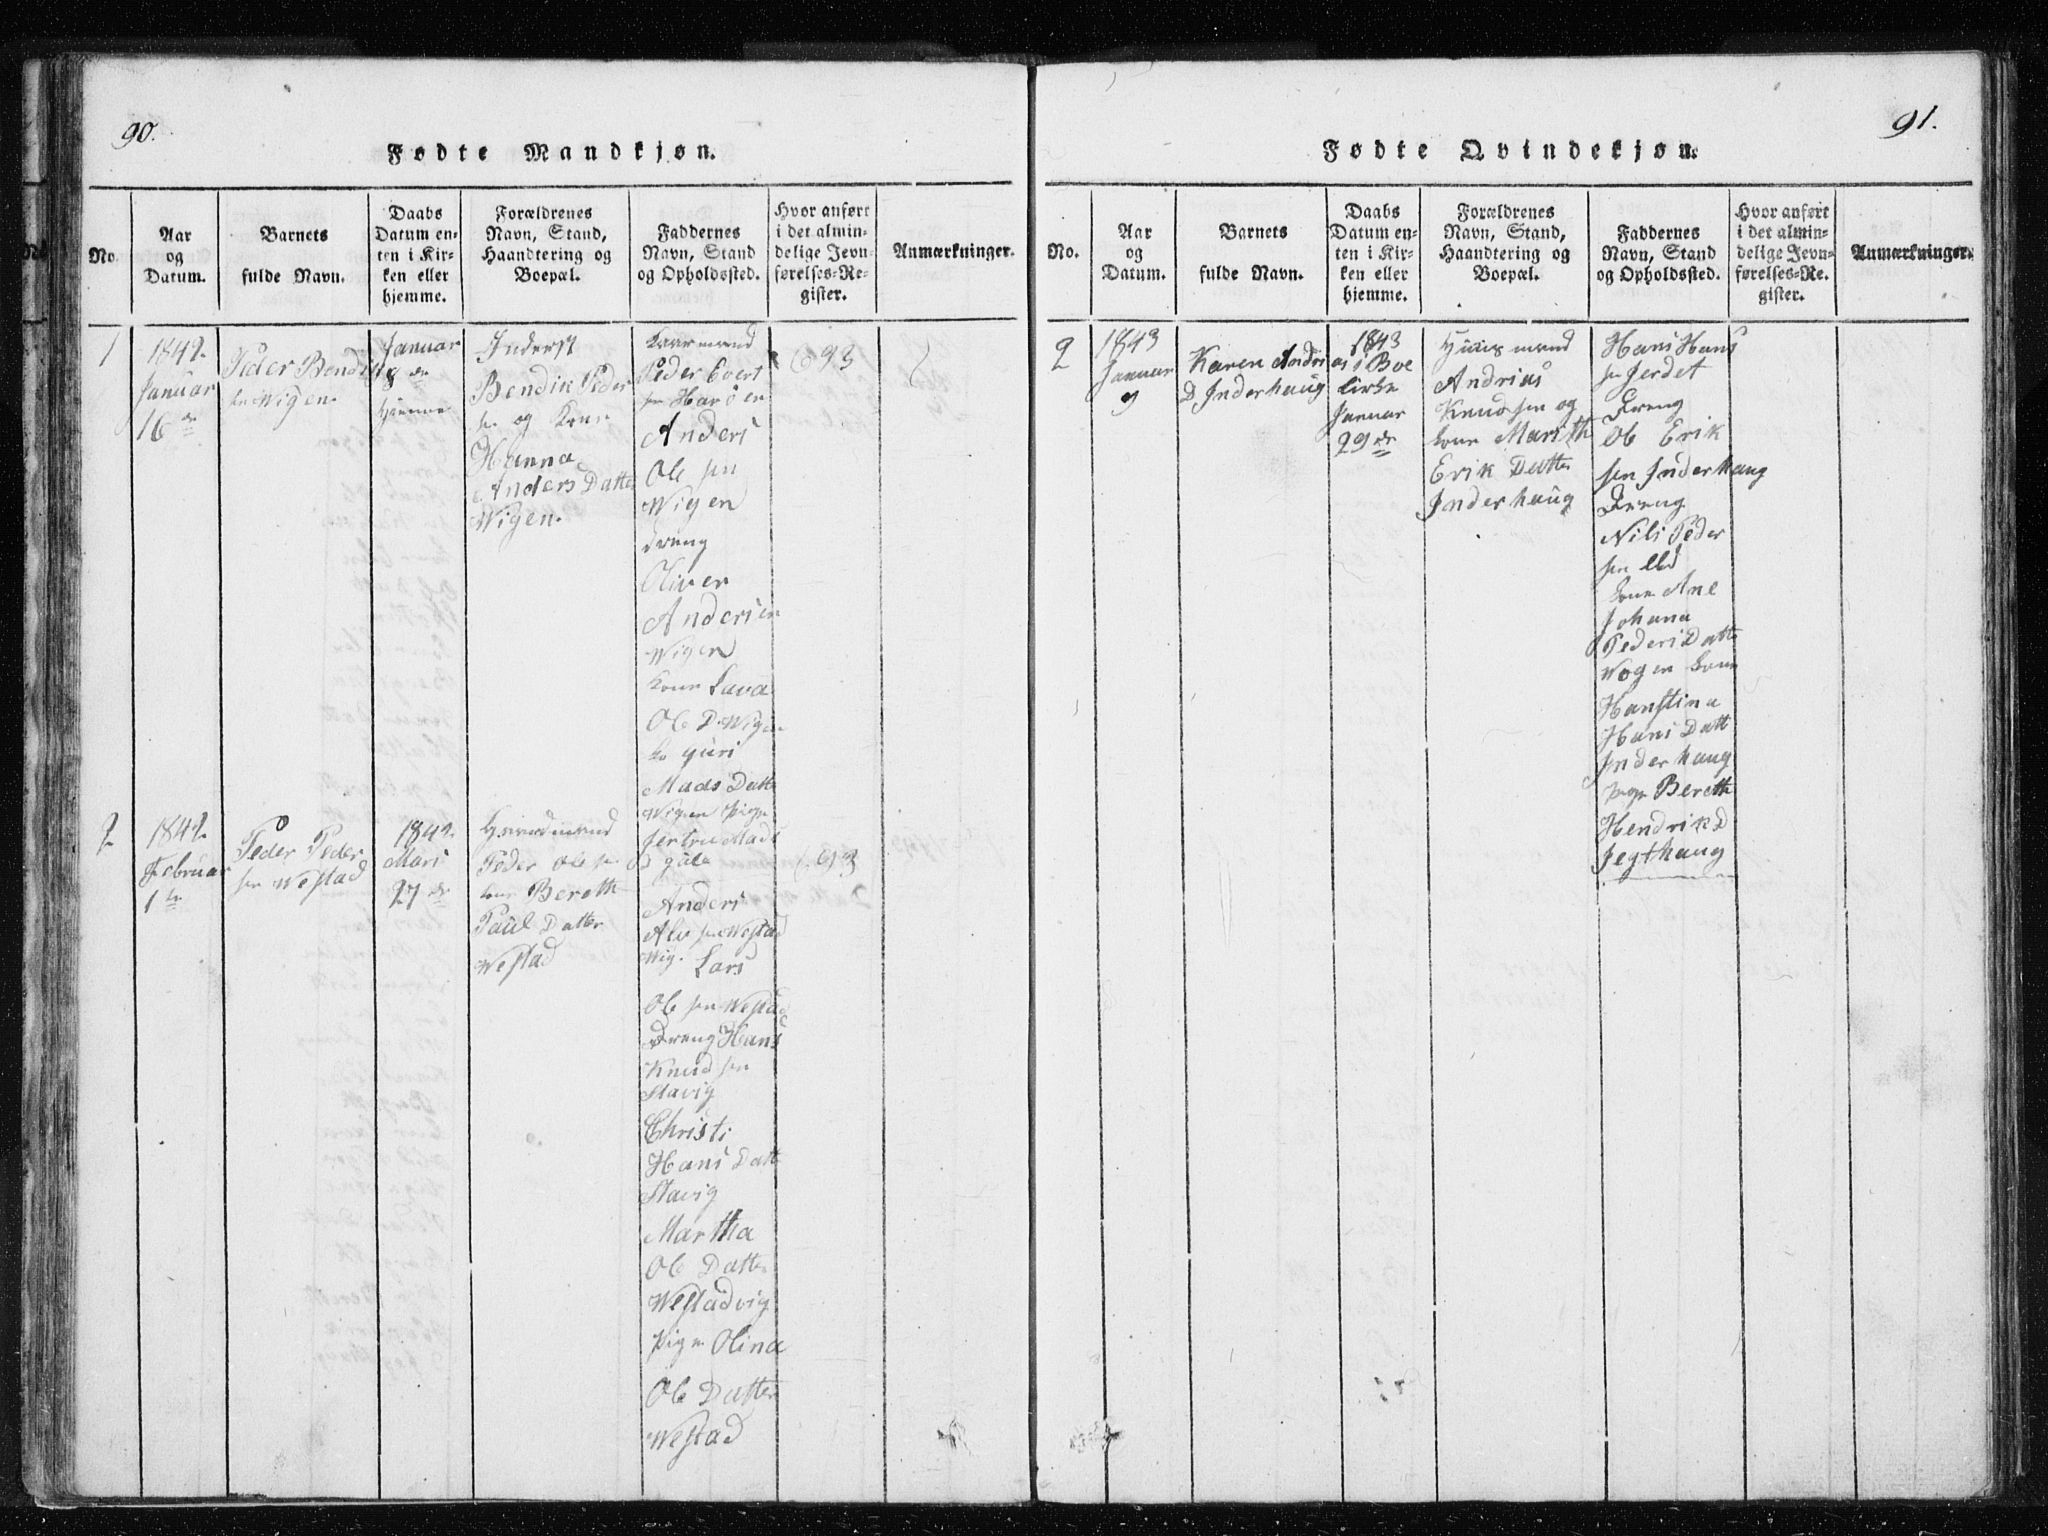 90.
Fødte Mandkjøn.
No.
Aar
og
Datum.
Barnets
fulde Navn.
Daabs
Datum en-
ten i Kir-
ken eller
hjemme.
Forældrenes
Navn, Stand,
Haandtering og
Boepæl.
Faddernes
Navn, Stand
og Opholdssted.
Hvor anført
i det almin-
delige Jevn-
førelses-Re-
gister.
Anmærkninger.
1
1842
Januar
16 de
Peder Bendik
sen Wigen
Januar
de
Hjemme
Inderst
Bendik Peder
sen og Kone
Hanna
Anders Datter
Wigen.
Peder Evert
sen Harøen
Anders
Ole sen
Wigen
dreng
Oliver
Andersen
Wigen
Kone Lava
Ole D. Wigen
Ko Guri
Mads Datter
Wigen Pige
Jertru Mads
D
693
2
1842
Februar
1 te
Peder Peder
sen Westad
1842
Mars
27 de
Gaardmand
Peder Ole sen
kone Bereth
Paul Datter
Westad
Anders
Ale sen Westad
wig. Lars
Ole sen Westad
Dreng Hans
Knud sen
Stavig
Christi
Hans Datt
Stavig
Martha
Ole Datter
Westadvig
Pige Olina
Ole Datter
Westad
693
91.
Fødte Qvindekjøn.
No.
Aar
og
Datum.
Barnets
fulde Navn.
Daabs
Datum en-
ten i Kir-
ken eller
hjemme.
Forældrenes
Navn, Stand,
Haandtering og
Boepæl.
Faddernes
Navn, Stand
og Opholdssted.
Hvor anført
i det almin-
delige Jevn-
førelses-Re-
gister.
Anmærkninger.
2
1843
Januar
9
Karen Andrias
D Inderhaug
1843
i Boe
kirke
Januar
29 de
Huusmand
Andrias
Knudsen og
kone Marith
Erik Datter
Inderhaug
Hans Hans
sen Jerdet
Dreng
Ole Erik
sen Inderhaug
Dreng
Nils Peder
sen
kone Ane
Johana
Peders Datter
Wogen kone
Hanstina
Hans Datt
Inderhaug
pige Bereth
Hendrik D
Jegthaug